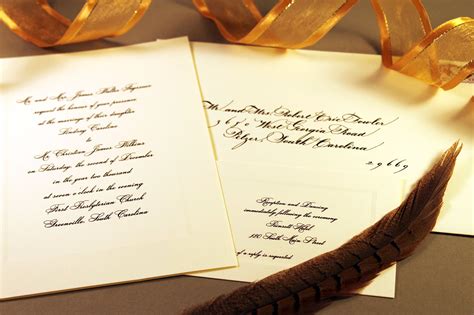 Mr. and Mrs. James
request the honour of your presence
at the marriage of their daughter
Lindsay Caroline
to
Mr. Christian James Wilkins
on Saturday, the second of December
in the year two thousand
at seven o'clock in the evening
First Presbyterian Church
Greenville, South Carolina
Mr. and Mrs. Robert Eric Fowler
West Georgia Road
Pelzer, South Carolina
29669
Reception and Dancing
immediately following the ceremony
Hotel
South Main Street
is requested